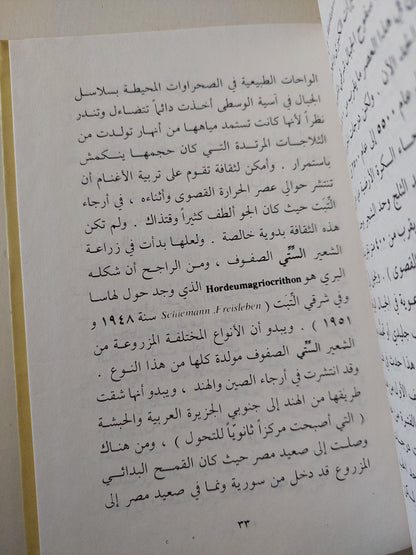 الواحات الطبيعية في الصحراوات المحيطة بسلاسل
الجبال في آسية الوسطى أخذت دائماً تتضاءل وتندر
نظراً لأنها كانت تستمد مياهها من أنهار تولدت من
الثلاجات المرتدة التي كان حجمها ينكمش
باستمرار . وأمكن لثقافة تقوم على تربية الأغنام أن
تنتشر حوالي عصر الحرارة القصوى وأثناءه ، في أرجاء
التِّبَت حيث كان الجو ألطف كثيراً وقتذاك . ولم تكن
هذه الثقافة بدوية خالصة . ولعلها بدأت في زراعة
الشعير السِّتّي الصفوف ، ومن الراجح أن شكله
البري هو Hordeumagriocrithon الذي وجد حول لهاسا
وفي شرقي التِّبَت ( Schiemann ,Freisleben سنة ١٩٤٨ و
١٩٥١ ) . ويبدو أن الأنواع المختلفة المزروعة من
الشعير السِّتّي الصفوف مولدة كلها من هذا النوع .
وقد انتشرت في أرجاء الصين والهند ، ويبدو أنها شقت
طريقها من الهند إلى جنوبي الجزيرة العربية والحبشة
( التي أصبحت مركزاً ثانوياً للتحول ) ، ومن هناك
وصلت إلى صعيد مصر حيث كان القمح البدائي
المزروع قد دخل من سورية ونما في صعيد مصر إلى
٣٣